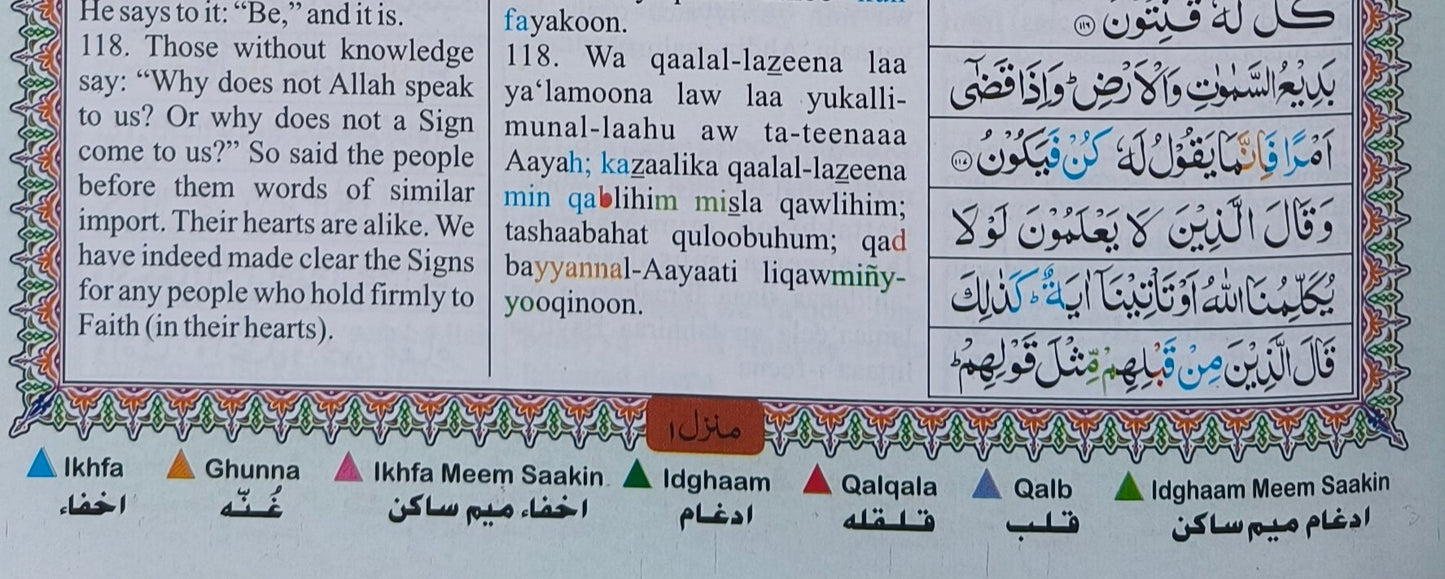 He says to it: “Be,” and it is.
118. Those without knowledge
say: “Why does not Allah speak
to us? Or why does not a Sign
come to us?” So said the people
before them words of similar
import. Their hearts are alike. We
have indeed made clear the Signs
for any people who hold firmly to
Faith (in their hearts).
fayakoon.
118. Wa qaalal-lazeena laa
ya‘lamoona law laa yukalli-
munal-laahu aw ta-teenaaa
Aayah; kazaalika qaalal-lazeena
min qablihim misla qawlihim;
tashaabahat quloobuhum; qad
bayyannal-Aayaati liqawmiñy-
yooqinoon.
كُلٌّ لَّهٗ قٰنِتُوْنَ ﴿۱۱۶﴾
بَدِيْعُ السَّمٰوٰتِ وَالْاَرْضِ ؕ وَاِذَا قَضٰٓى
اَمْرًا فَاِنَّمَا يَقُوْلُ لَهٗ كُنْ فَيَكُوْنُ ﴿۱۱۷﴾
وَقَالَ الَّذِيْنَ لَا يَعْلَمُوْنَ لَوْلَا
يُكَلِّمُنَا اللّٰهُ اَوْ تَاْتِيْنَاۤ اٰيَةٌ ؕ كَذٰلِكَ
قَالَ الَّذِيْنَ مِنْ قَبْلِهِمْ مِّثْلَ قَوْلِهِمْ ؕ
منزل ۱
Ikhfa Ghunna Ikhfa Meem Saakin Idghaam Qalqala Qalb Idghaam Meem Saakin
اخفاء غُنّه اخفاء میم ساکن ادغام قلقله قلب ادغام میم ساکن